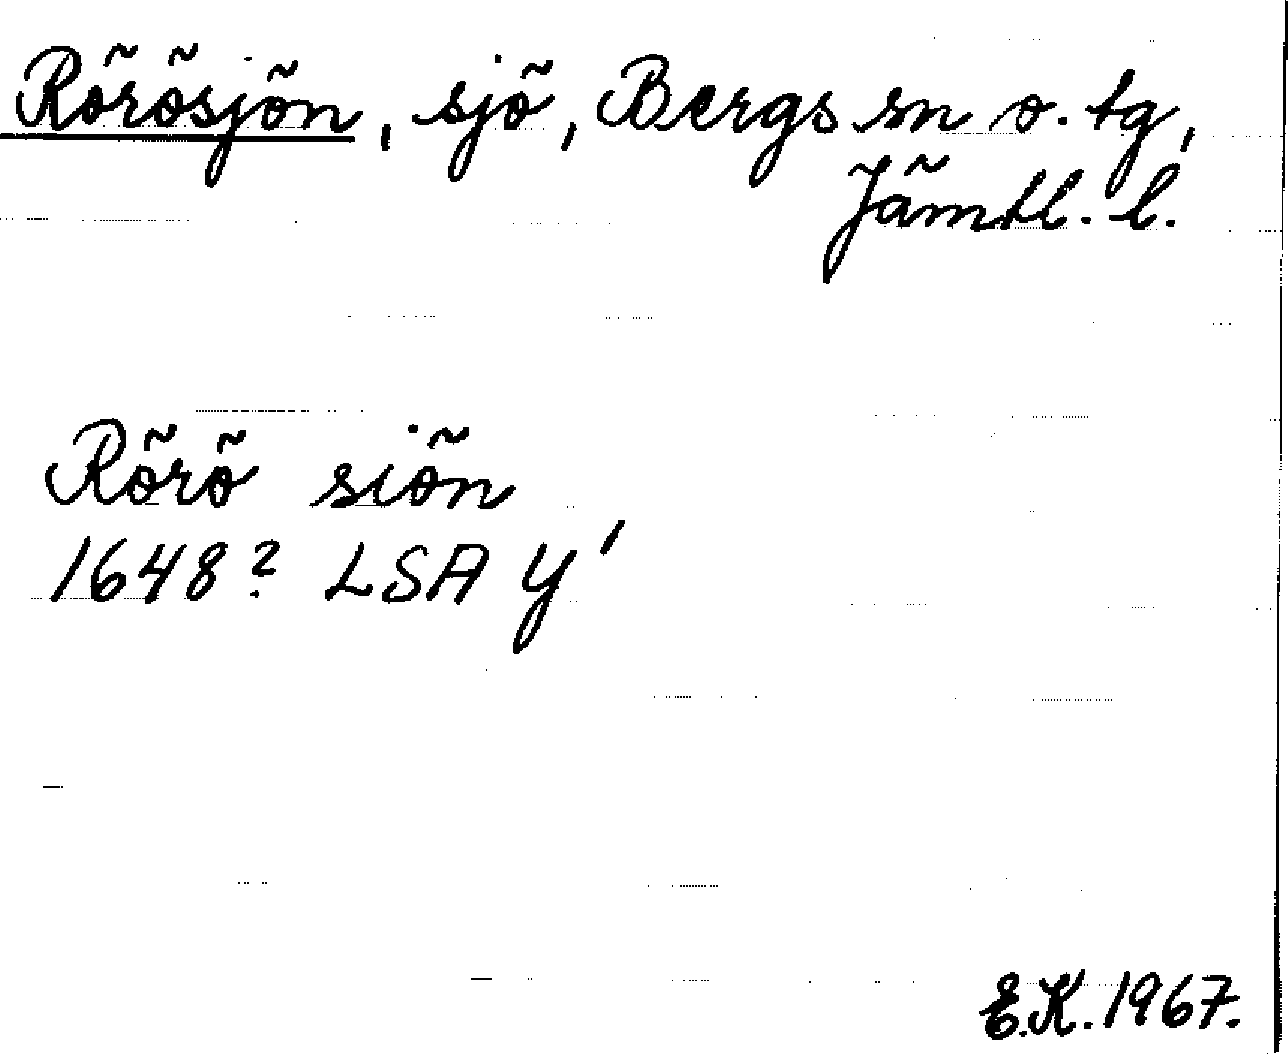 Rörösjön, sjö, Bergs sn o. tg,
Jämtl. l.
Rörö siön
1648? LSA Y'
E.K. 1967.